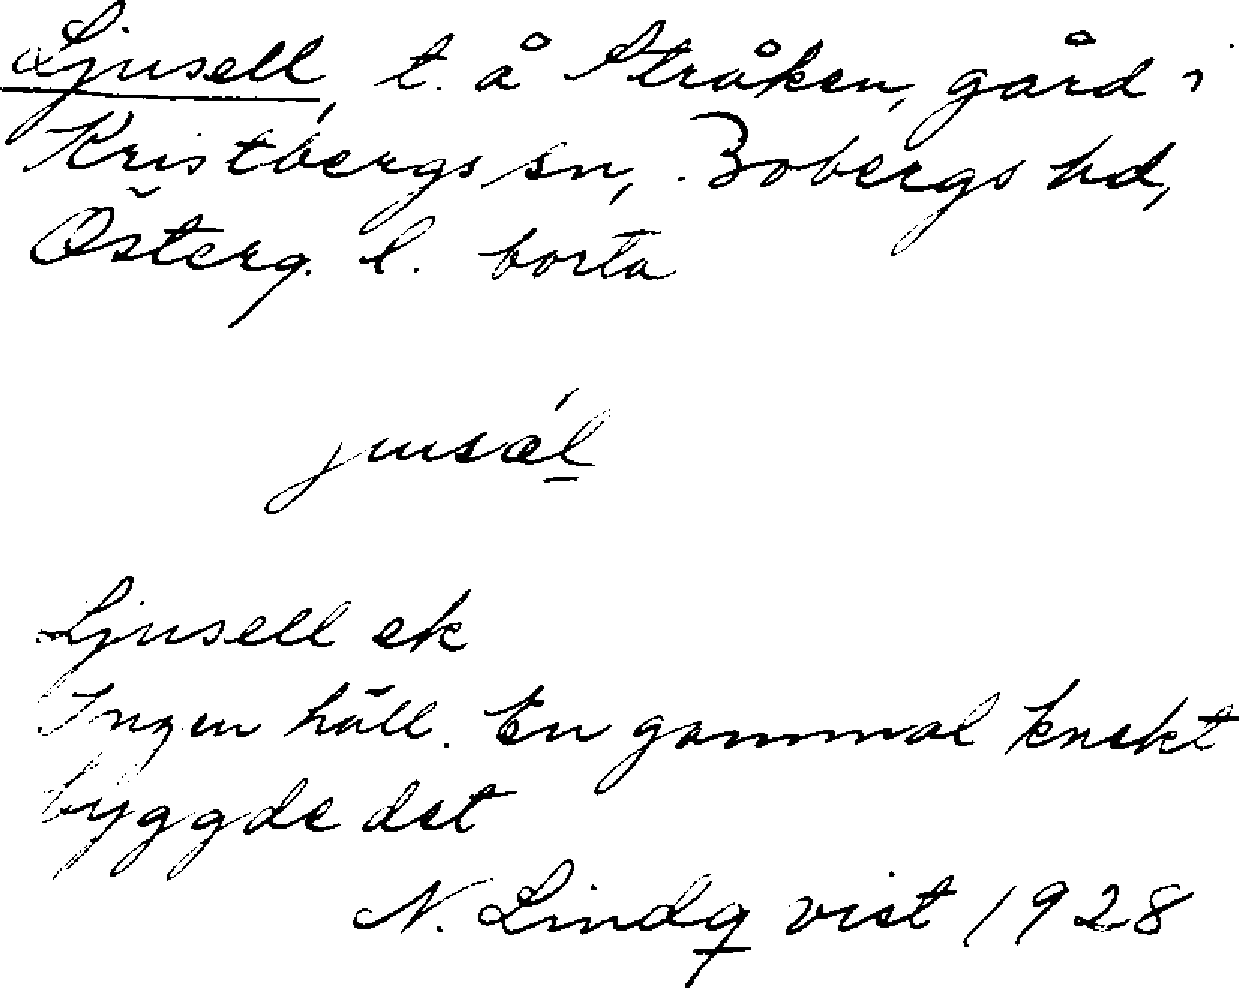 Ljusell, t. å Stråken, gård i
Kristbergs sn, Bobergs hd,
Österg. l. borta
jusǽl
Ljusell ek
Ingen häll. En gammal knekt
byggde det
N. Lindqvist 1928